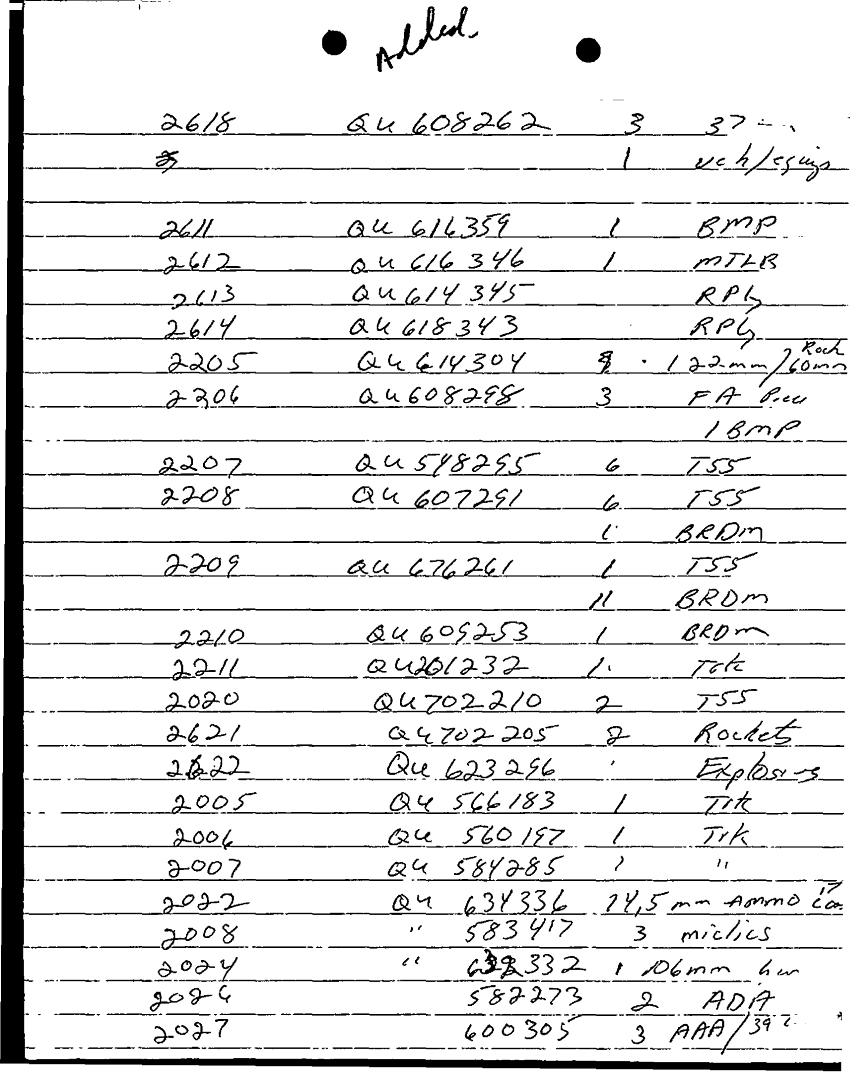 Added.
2618 QU 608262 3 37
1 veh/equip
2611 QU 616359 1 BMP
2612 QU 616346 1 MTLB
2613 QU 614345 RPG
2614 QU 618343 RPG
2205 QU 614304 122mm/60mm Rock
2206 QU 608298 3 FA
1 BMP
2207 QU 548295 6 T55
2208 QU 607291 6 T55
1 BRDM
2209 QU 676261 1 T55
11 BRDM
2210 QU 609253 1 BRDM
2211 QU 201232 1 Trk
2020 QU 702210 2 T55
2621 QU 702205 2 Rockets
2622 QU 623296 Explosives
2005 QU 566183 1 Trk
2006 QU 560197 1 Trk
2007 QU 584285 1 "
2022 QU 634336 14,5 mm Ammo 17
2008 " 583417 3 miclics
2024 " 332 1 106mm
2026 582273 2 ADA
2027 600305 3 AAA/39